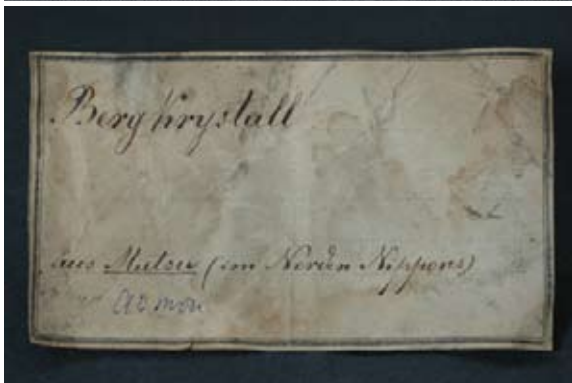 Bergkrystall
aus Mutsu (im Norden Nippons)